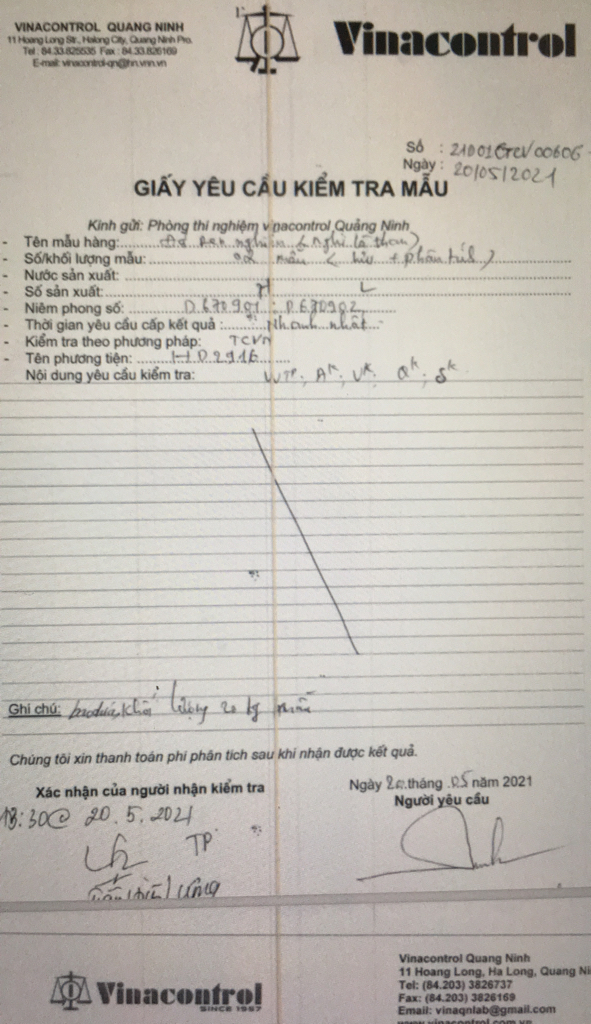 VINACONTROL QUANG NINH
11 Hoang Long Str., Halong City, Quang Ninh Pro.
Tel : 84.33.825535 Fax : 84.33.826169
E-mail: vinacontrol-qn@hn.vnn.vn
Vinacontrol
Số :
Ngày : 20/05/2021
GIẤY YÊU CẦU KIỂM TRA MẪU
Kính gửi: Phòng thí nghiệm vinacontrol Quảng Ninh
- Tên mẫu hàng: (Nghi là than)
- Số/khối lượng mẫu: 02 mẫu ( lưu + phân tích )
- Nước sản xuất:
- Số sản xuất: H L
- Niêm phong số: D.670901 ; D.670902
- Thời gian yêu cầu cấp kết quả : Nhanh nhất
- Kiểm tra theo phương pháp: TCVN
- Tên phương tiện: HD2916
Nội dung yêu cầu kiểm tra: WTP; Ak; Vk; Qk; Sk
Ghi chú: lượng 20 kg
Chúng tôi xin thanh toán phí phân tích sau khi nhận được kết quả.
Xác nhận của người nhận kiểm tra
Ngày 20 tháng 05 năm 2021
Người yêu cầu
18:30@ 20.5.2021
TP
Vinacontrol
SINCE 1957
Vinacontrol Quang Ninh
11 Hoang Long, Ha Long, Quang Ni
Tel: (84.203) 3826737
Fax: (84.203) 3826169
Email: vinaqnlab@gmail.com
www.vinacontrol.com.vn